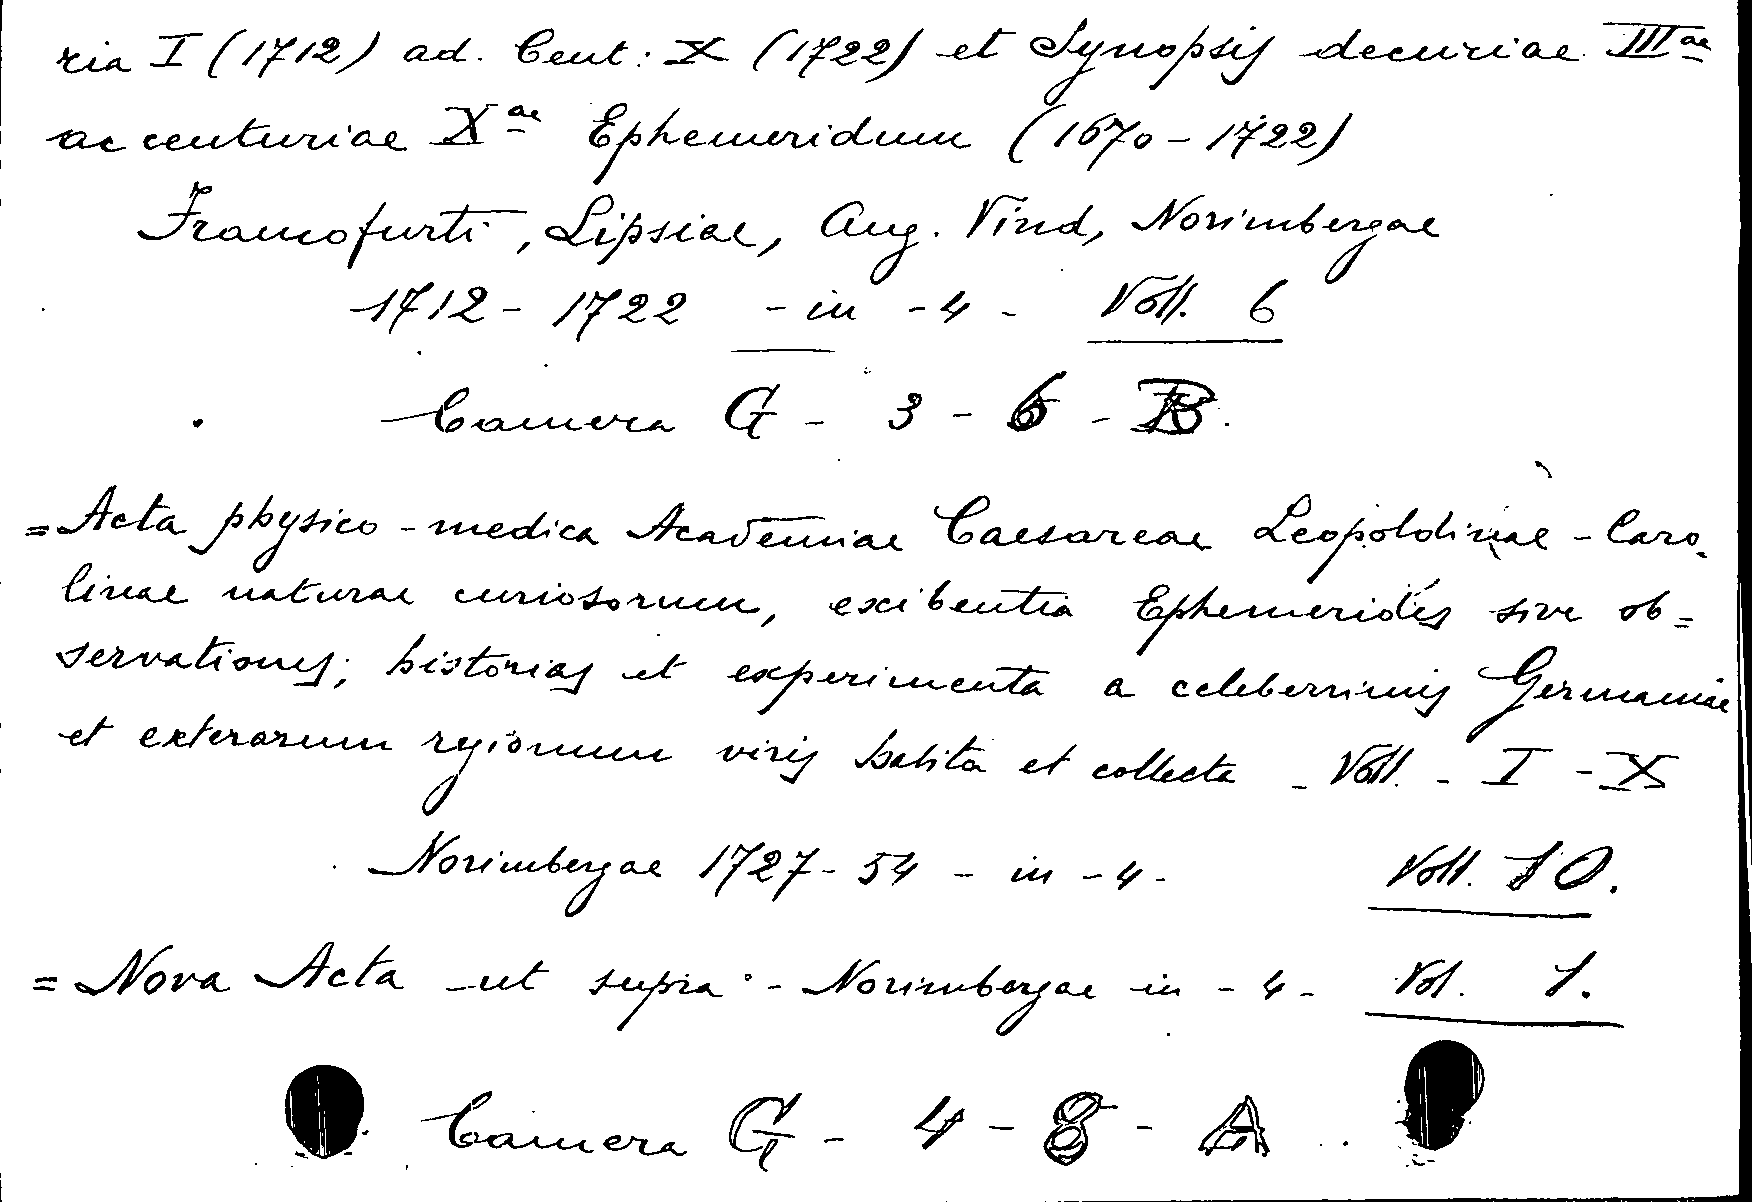 ria I (1712) ad. Cent: X (1722) et Synopsis decuriae IIIae
ac centuriae Xae Ephemeridum (1670-1722)
Francofurti, Lipsiae, Aug. Vind, Norimbergae
1712 - 1722 - in - 4 - Voll. 6
Camera G - 3 - 6 - B.
= Acta physico-medica Academiae Caesareae Leopoldinae - Caro-
linae naturae curiosorum, exibentia Ephemerides sive ob=
servationes; historias et experimenta a celeberrimis Germaniae
et exterarum regionum viris habita et collecta - Voll. - I - X
Norimbergae 1727-54 - in - 4 - Voll. 10.
= Nova Acta - ut supra - Norimbergae in - 4 - Vol. 1.
Camera G - 4 - 8 - A